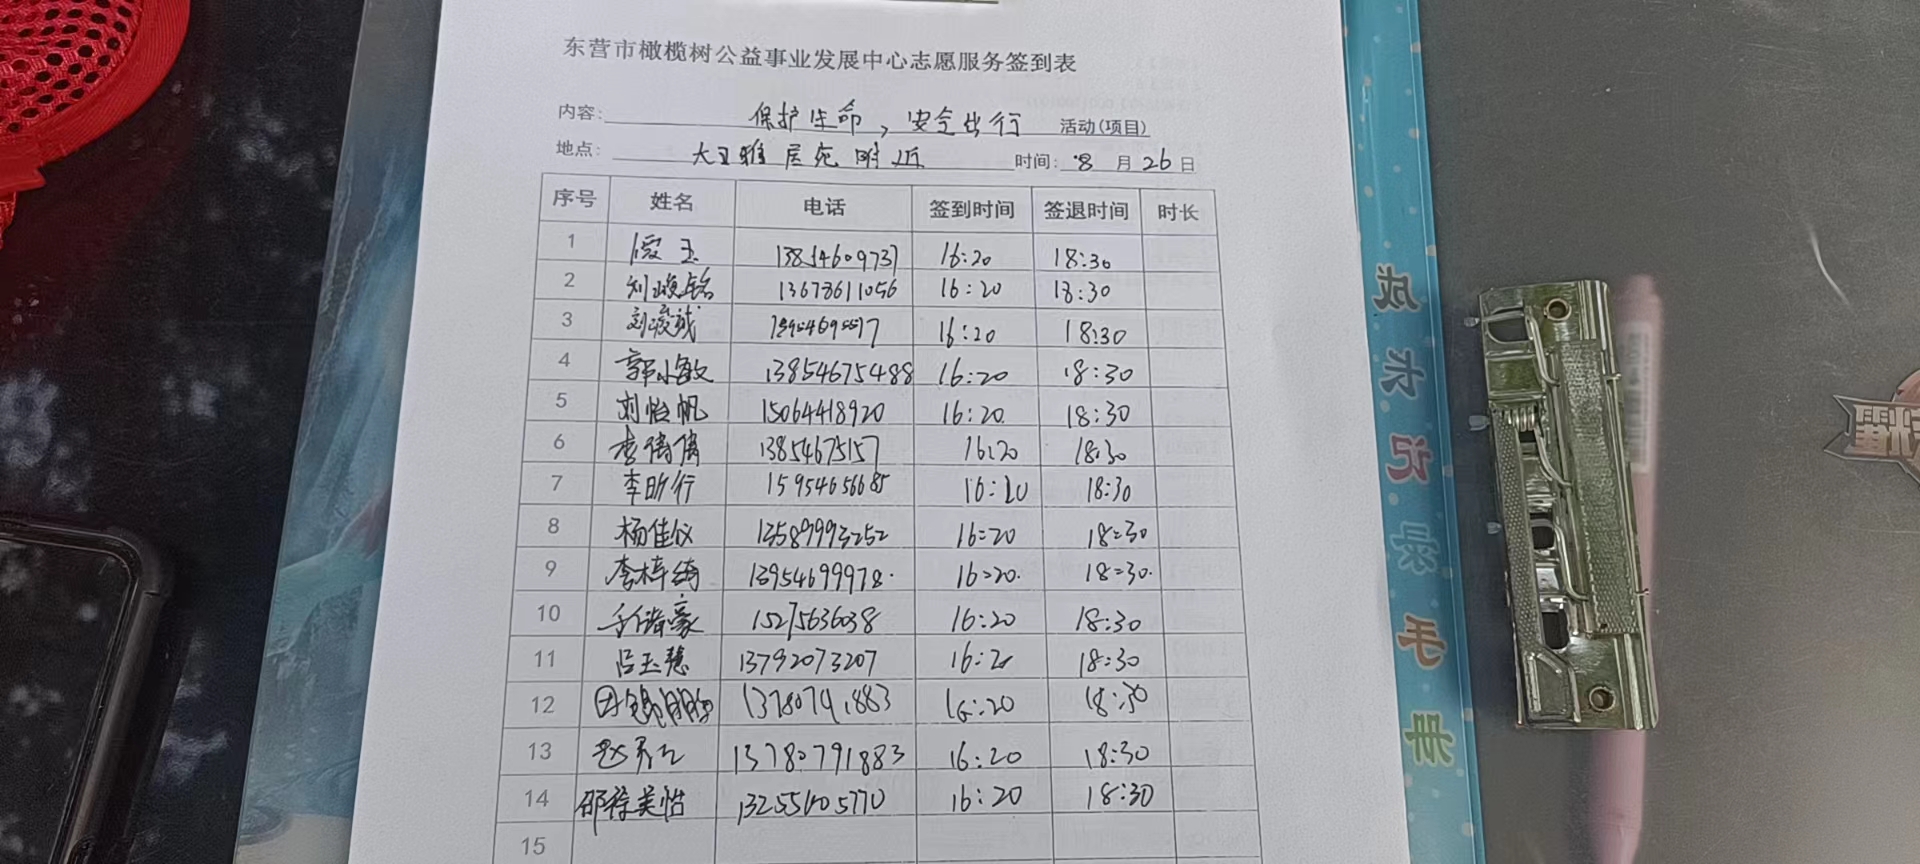 东营市橄榄树公益事业发展中心志愿服务签到表
内容: 保护生命，安全出行 活动(项目)
地点: 大卫雅居苑附近 时间: 8 月 26 日
序号 姓名 电话 签到时间 签退时间 时长
1 13854609737 16:20 18:30
2 刘峻铭 13678611056 16:20 18:30
3 刘浚诚 16:20 18:30
4 郭小敏 13854675488 16:20 18:30
5 刘怡帆 15064418920 16:20 18:30
6 李倩倩 13854675157 16:20 18:30
7 李昕行 15954656685 16:20 18:30
8 杨佳仪 13589993252 16:20 18:30
9 李梓绮 13954699978 16:20 18:30
10 15275636038 16:20 18:30
11 吕玉慧 13792073207 16:20 18:30
12 13780791883 16:20 18:30
13 13780791883 16:20 18:30
14 邵徐美怡 13255605770 16:20 18:30
15
成长记录手册